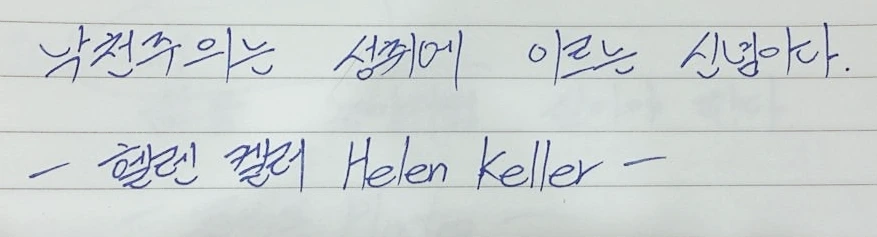 낙천주의는 성취에 이르는 신념이다.
- 헬렌 켈러 Helen Keller -